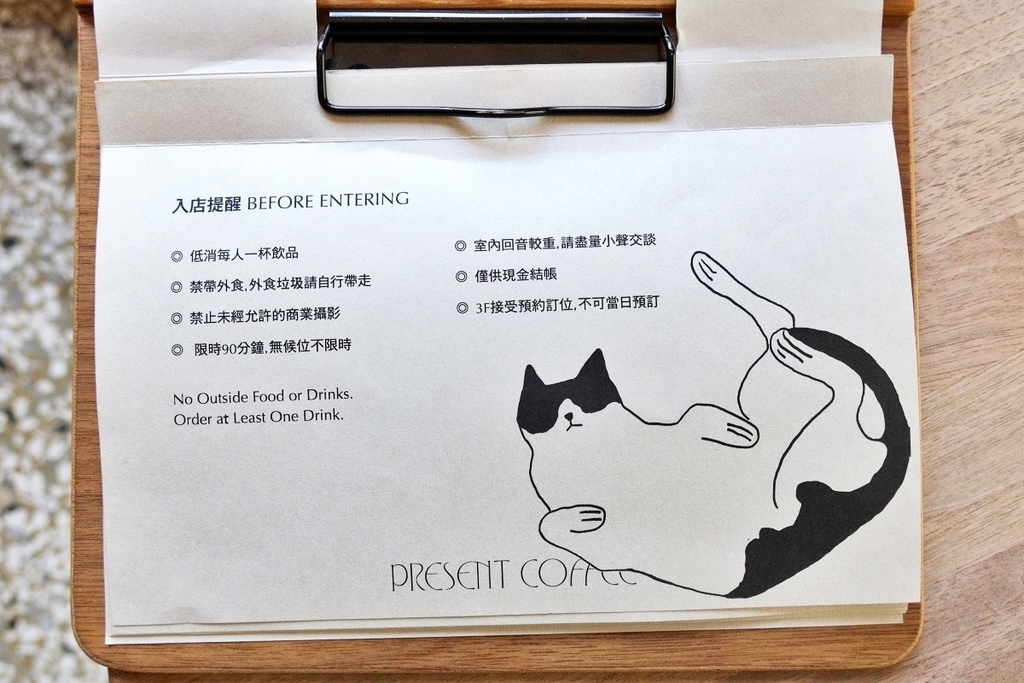 入店提醒 BEFORE ENTERING
◎ 低消每人一杯飲品
◎ 禁帶外食,外食垃圾請自行帶走
◎ 禁止未經允許的商業攝影
◎ 限時90分鐘,無候位不限時
No Outside Food or Drinks.
Order at Least One Drink.
◎ 室內回音較重,請盡量小聲交談
◎ 僅供現金結帳
◎ 3F接受預約訂位,不可當日預訂
PRESENT COFFEE